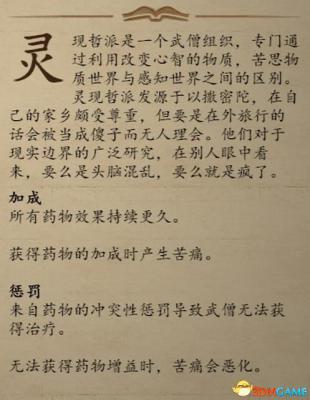 灵现哲派是一个武僧组织，专门通
过利用改变心智的物质，苦思物
质世界与感知世界之间的区别。
灵现哲派发源于以撒密陀，在自
己的家乡颇受尊重，但要是在外旅行的
话会被当成傻子而无人理会。他们对于
现实边界的广泛研究，在别人眼中看
来，要么是头脑混乱，要么就是疯了。
加成
所有药物效果持续更久。
获得药物的加成时产生苦痛。
惩罚
来自药物的冲突性惩罚导致武僧无法获
得治疗。
无法获得药物增益时，苦痛会恶化。
3DMGAME